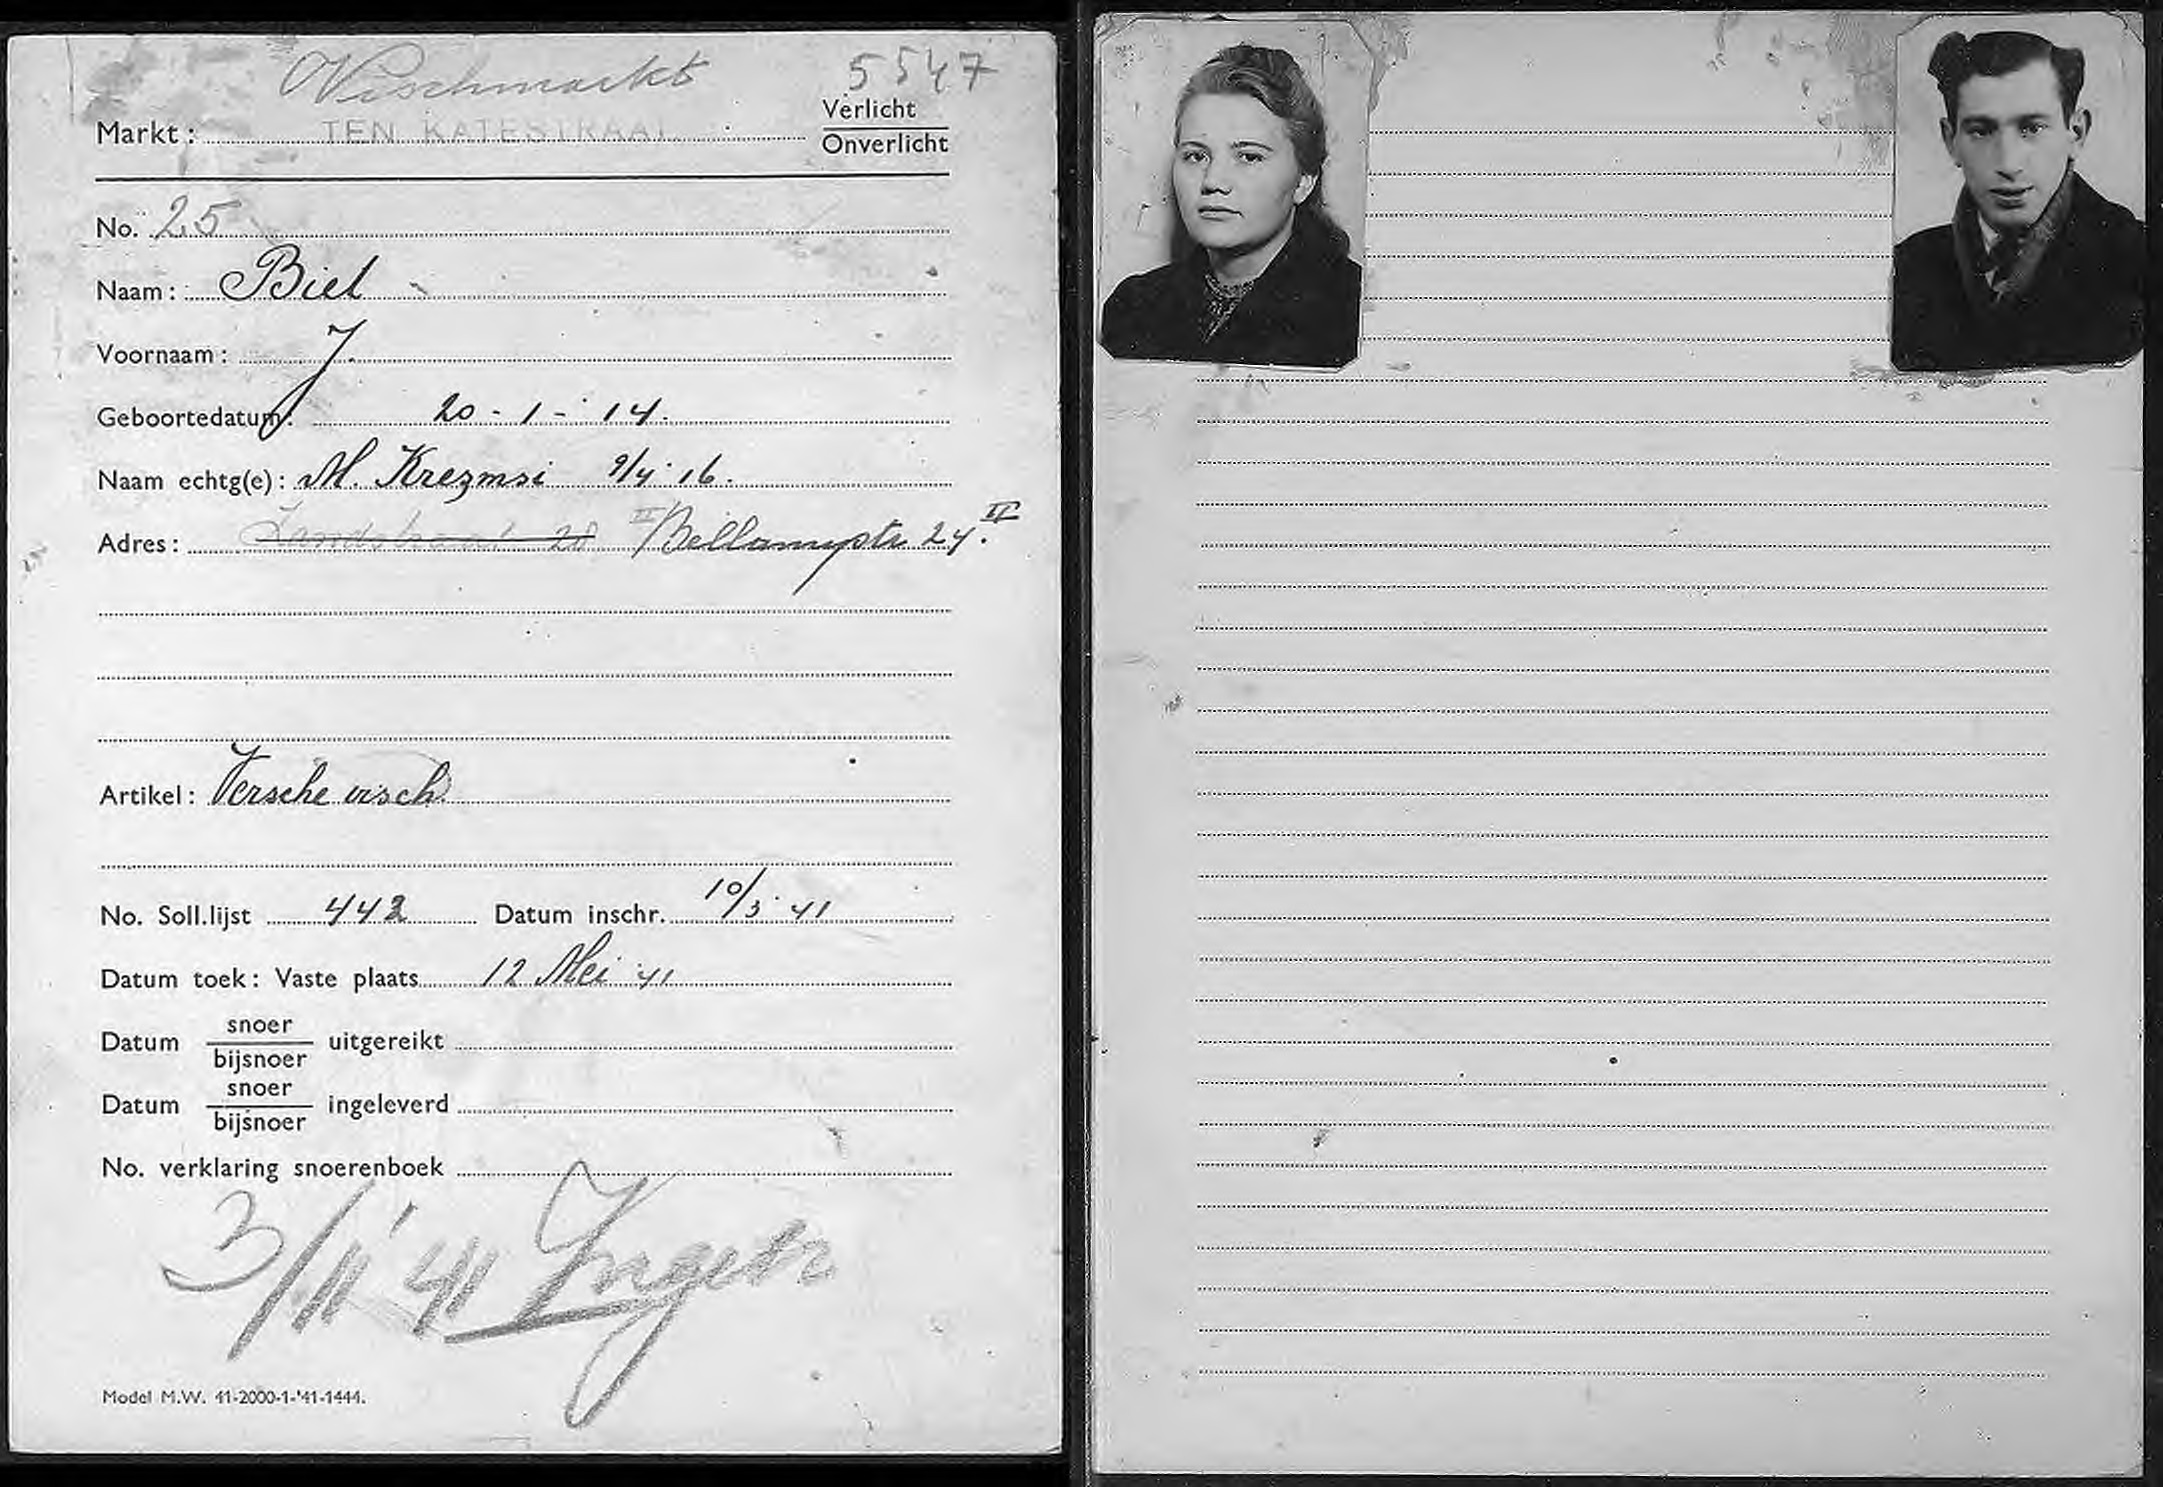 Vischmarkt 5547
Markt: TEN KATESTRAAT
Verlicht
Onverlicht
No. 25
Naam: Biet
Voornaam: J.
Geboortedatum: 20-1-'14.
Naam echtg(e): M. Krezmsi 9/4 '16.
Adres: Zandstraat 28 II Bellamystr 24. II
Artikel: Versche visch
No. Soll.lijst 442 Datum inschr. 10/3 '41
Datum toek: Vaste plaats 12 Mei '41
Datum snoer/bijsnoer uitgereikt
Datum snoer/bijsnoer ingeleverd
No. verklaring snoerenboek
3/11 '41 Ingetr.
Model M.W. 41-2000-1-'41-1444.